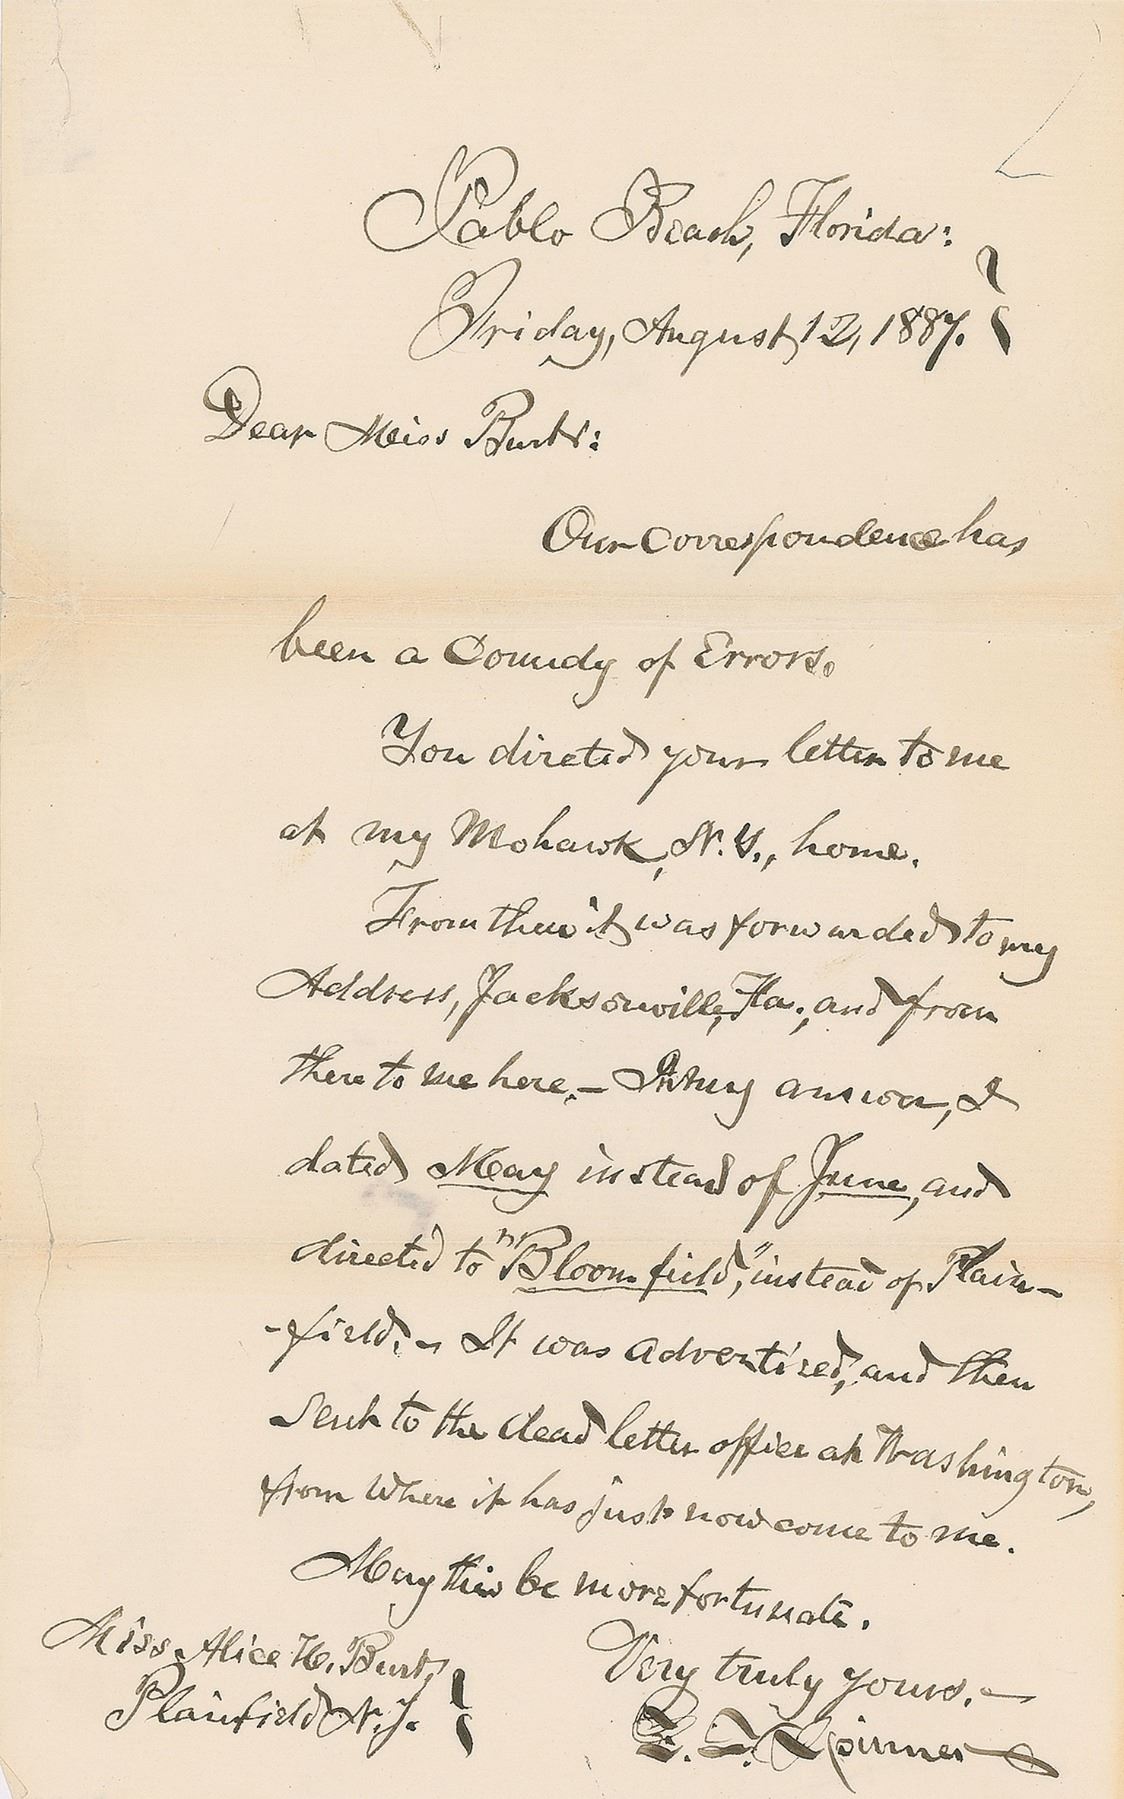 Pablo Beach, Florida:
Friday, August 12, 1887.
Dear Miss Burt:
Our correspondence has
been a Comedy of Errors.
You directed your letter to me
at my Mohawk, N.Y., home.
From there it was forwarded to my
Address, Jacksonville, Fla., and from
there to me here. – In my answer, I
dated May instead of June, and
directed to "Bloomfield," instead of Plain-
-field. – It was advertized, and then
sent to the dead letter office at Washington,
from where it has just now come to me.
May this be more fortunate.
Very truly yours. –
F. E. Spinner
Miss Alice H. Burt,
Plainfield N.J.